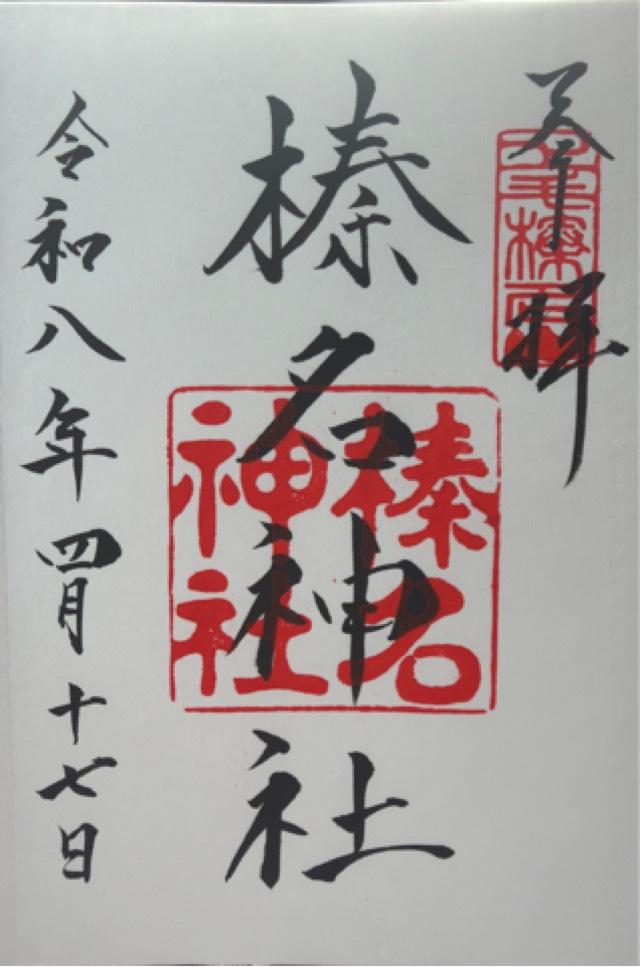 奉拝
榛名神社
榛名
神社
令和八年四月十七日